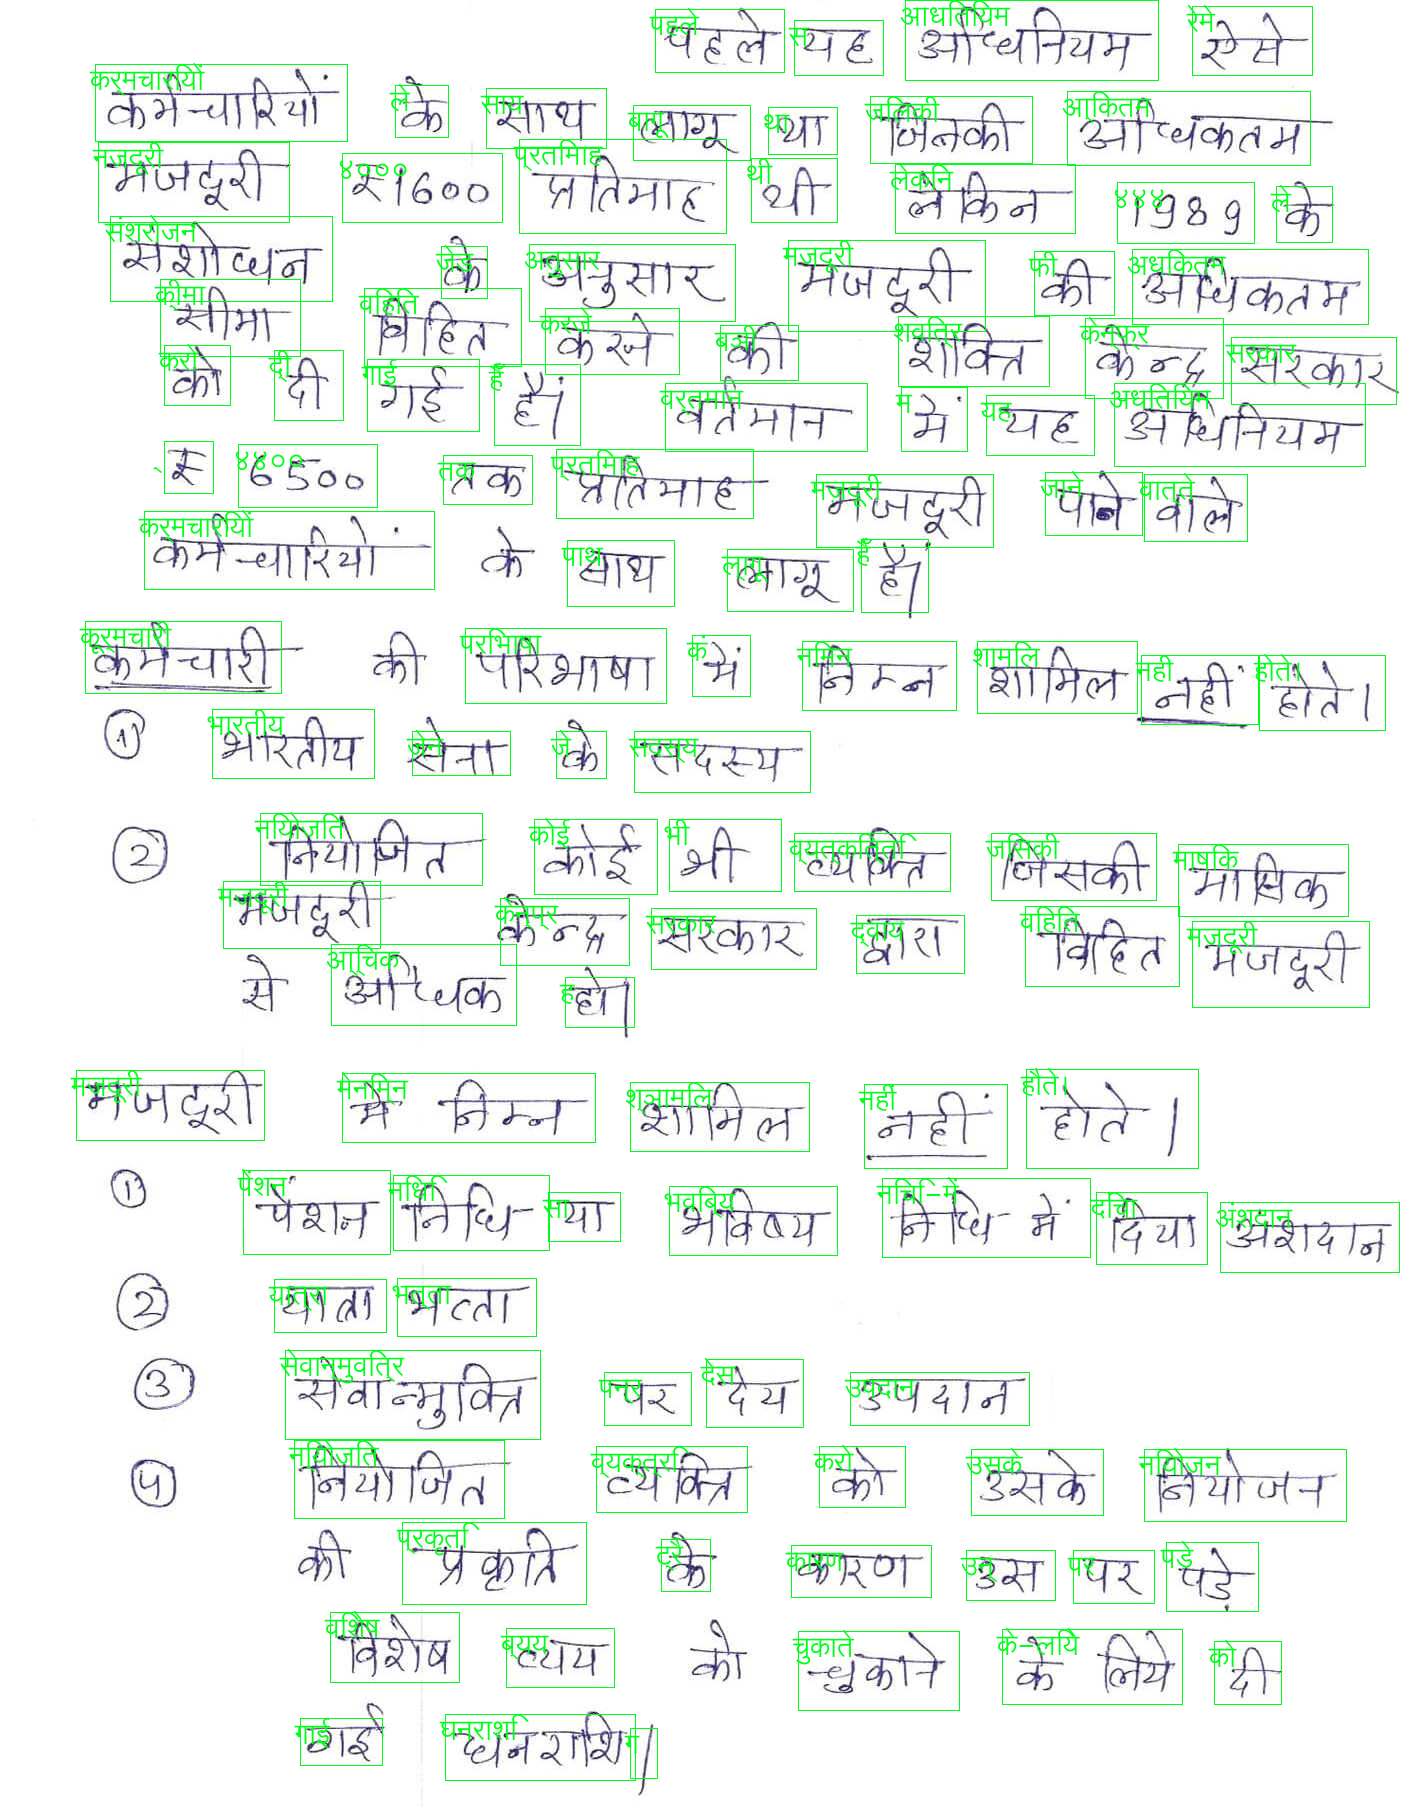 पहले यह अधिनियम ऐसे
कर्मचारियों के साथ लागू था जिनकी अधिकतम
मजदूरी ₹1600 प्रतिमाह थी लेकिन 1989 के
संशोधन के अनुसार मजदूरी की अधिकतम
सीमा विहित करने की शक्ति केन्द्र सरकार
को दी गई है। वर्तमान में यह अधिनियम
₹ 6500 तक प्रतिमाह मजदूरी पाने वाले
कर्मचारियों के साथ लागू है।
कर्मचारी की परिभाषा में निम्न शामिल नहीं होते।
① भारतीय सेना के सदस्य
② नियोजित कोई भी व्यक्ति जिसकी मासिक
मजदूरी केन्द्र सरकार द्वारा विहित मजदूरी
से अधिक हो।
मजदूरी में निम्न शामिल नहीं होते।
① पेंशन निधि या भविष्य निधि में दिया अंशदान
② यात्रा भत्ता
③ सेवान्मुक्ति पर देय उपदान
④ नियोजित व्यक्ति को उसके नियोजन
की प्रकृति के कारण उस पर पड़े
विशेष व्यय को चुकाने के लिये दी
गई धनराशि।